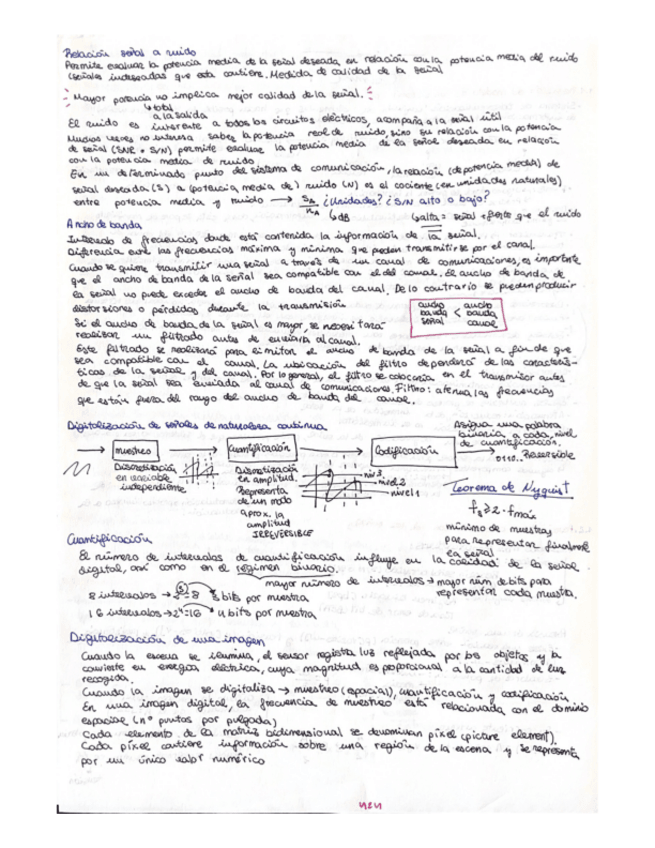 Relación señal a ruido
Permite evaluar la potencia media de la señal deseada en relación con la potencia media del ruido
(señales indeseadas que esta contiene. Medida de calidad de la señal
Mayor potencia no implica mejor calidad de la señal.
↳total
a la salida
El ruido es inherente a todos los circuitos eléctricos, acompaña a la señal útil
Muchas veces no interesa saber la potencia real de ruido, sino su relación con la potencia
de señal (SNR = S/N) permite evaluar la potencia media de la señal deseada en relación
con la potencia media de ruido
En un determinado punto del sistema de comunicación, la relación (de potencia media) de
señal deseada (S) a (potencia media de) ruido (N) es el cociente (en unidades naturales)
entre potencia media y ruido → ¿Unidades? ¿S/N alto o bajo?
↳dB ↳alta = señal +fuerte que el ruido
Ancho de banda
Intervalo de frecuencias donde está contenida la información de la señal.
Diferencia entre las frecuencias máxima y mínima que pueden transmitirse por el canal.
Cuando se quiere transmitir una señal a través de un canal de comunicaciones, es importante
que el ancho de banda de la señal sea compatible con el del canal. El ancho de banda de
la señal no puede exceder el ancho de banda del canal. De lo contrario se pueden producir
distorsiones o pérdidas durante la transmisión
ancho banda señal < ancho banda canal
Si el ancho de banda de la señal es mayor, se necesitará
realizar un filtrado antes de enviarla al canal.
Este filtrado se realizará para limitar el ancho de banda de la señal a fin de que
sea compatible con el canal. La ubicación del filtro dependerá de las caracterís-
ticas de la señal y del canal. Por lo general, el filtro se colocaría en el transmisor antes
de que la señal sea enviada al canal de comunicaciones. Filtro: atenúa las frecuencias
que están fuera del rango del ancho de banda del canal.
Digitalización de señales de naturaleza continua
muestreo
Cuantificación
Codificación
Asigna una palabra
binaria a cada nivel
de cuantificación.
0110. Reversible
Discretización
en variable
independiente
Discretización
en amplitud.
Representa
de un modo
aprox. la
amplitud
IRREVERSIBLE
niv 3
nivel 2
nivel 1
Teorema de Nyquist
fs ≥ 2 · fmáx
mínimo de muestras
para representar finalmente
la señal
Cuantificación
El número de intervalos de cuantificación influye en la calidad de la señal
digital, así como en el régimen binario.
mayor número de intervalos → mayor núm de bits para
representar cada muestra.
8 intervalos → 2³=8 3 bits por muestra
16 intervalos → 2⁴=16 4 bits por muestra
Digitalización de una imagen
Cuando la escena se ilumina, el sensor registra luz reflejada por los objetos y la
convierte en energía eléctrica, cuya magnitud es proporcional a la cantidad de luz
recogida.
Cuando la imagen se digitaliza → muestreo (espacial), cuantificación y codificación
En una imagen digital, la frecuencia de muestreo está relacionada con el dominio
espacial (nº puntos por pulgada)
Cada elemento de la matriz bidimensional se denominan píxel (picture element).
Cada píxel contiene información sobre una región de la escena y se representa
por un único valor numérico